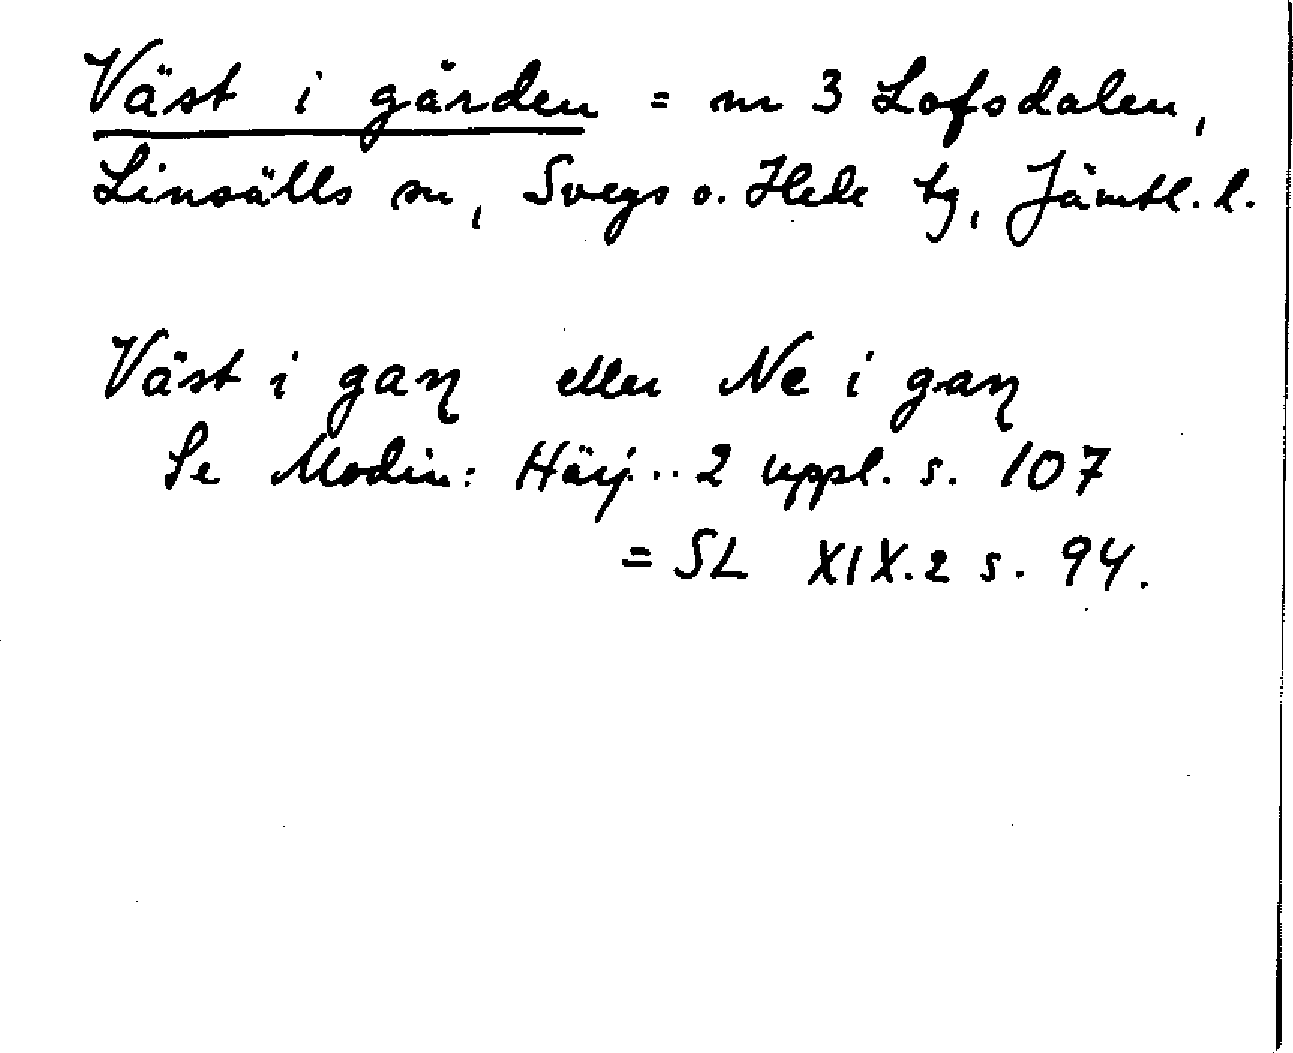 Väst i gården = nr 3 Lofsdalen,
Linsälls sn, Svegs o. Hede tg, Jämtl. l.
Väst i gaɳ eller Ne i gaɳ
Se Modin: Härj... 2 uppl. s. 107
= SL XIX.2 s. 94.